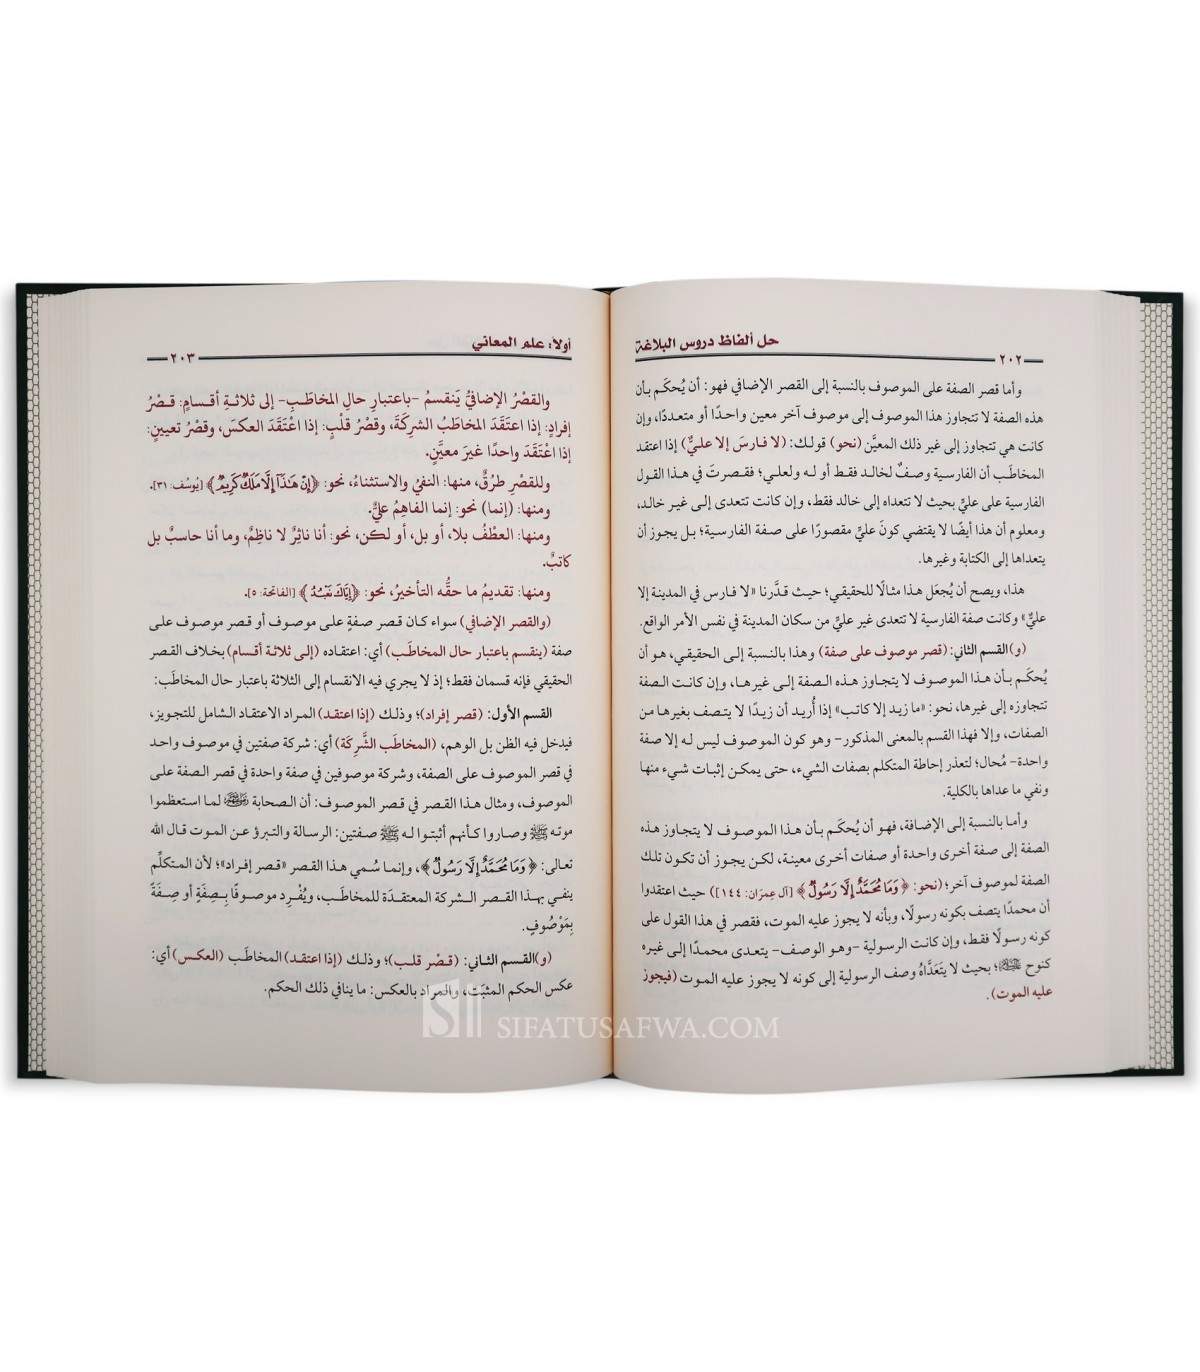 حل ألفاظ دروس البلاغة
٢٠٢
وأما قصر الصفة على الموصوف بالنسبة إلى القصر الإضافي فهو: أن يُحكَم بأن
هذه الصفة لا تتجاوز هذا الموصوف إلى موصوف آخر معين واحدًا أو متعددًا، وإن
كانت هي تتجاوز إلى غير ذلك المعيَّن (نحو) قولك: (لا فارسَ إلا عليٌّ) إذا اعتقد
المخاطَب أن الفارسية وصفٌ لخالد فقط أو له ولعلي؛ فقصرتَ في هذا القول
الفارسية على عليٍّ بحيث لا تتعداه إلى خالد فقط، وإن كانت تتعدى إلى غير خالد،
ومعلوم أن هذا أيضًا لا يقتضي كونَ عليٍّ مقصورًا على صفة الفارسية؛ بل يجوز أن
يتعداها إلى الكتابة وغيرها.
هذا، ويصح أن يُجعَل هذا مثالًا للحقيقي؛ حيث قدَّرنا «لا فارس في المدينة إلا
عليٌّ» وكانت صفة الفارسية لا تتعدى غير عليٍّ من سكان المدينة في نفس الأمر الواقع.
(و) القسم الثاني: (قصر موصوف على صفة) وهذا بالنسبة إلى الحقيقي، هو أن
يُحكَم بأن هذا الموصوف لا يتجاوز هذه الصفة إلى غيرها، وإن كانت الصفة
تتجاوزه إلى غيرها، نحو: «ما زيد إلا كاتب» إذا أُريد أن زيدًا لا يتصف بغيرها من
الصفات، وإلا فهذا القسم بالمعنى المذكور- وهو كون الموصوف ليس له إلا صفة
واحدة- مُحال؛ لتعذر إحاطة المتكلم بصفات الشيء، حتى يمكن إثبات شيء منها
ونفي ما عداها بالكلية.
وأما بالنسبة إلى الإضافة، فهو أن يُحكَم بأن هذا الموصوف لا يتجاوز هذه
الصفة إلى صفة أخرى واحدة أو صفات أخرى معينة، لكن يجوز أن تكون تلك
الصفة لموصوف آخر؛ (نحو: ﴿وَمَا مُحَمَّدٌ إِلَّا رَسُولٌ﴾ [آل عِمرَان: ١٤٤]) حيث اعتقدوا
أن محمدًا يتصف بكونه رسولًا، وبأنه لا يجوز عليه الموت، فقصر في هذا القول على
كونه رسولًا فقط، وإن كانت الرسولية -وهو الوصف- يتعدى محمدًا إلى غيره
كنوح ﷺ؛ بحيث لا يتَعَدَّاهُ وصف الرسولية إلى كونه لا يجوز عليه الموت (فيجوز
عليه الموت).
أولًا: علم المعاني
٢٠٣
والقصْرُ الإضافيُّ يَنقسمُ -باعتبارِ حالِ المخاطَبِ- إلى ثلاثةِ أقسامٍ: قصْرُ
إفرادٍ: إذا اعتَقَدَ المخاطَبُ الشرِكَةَ، وقصْرُ قلْبٍ: إذا اعْتَقَدَ العكسَ، وقصْرُ تعيينٍ:
إذا اعْتَقَدَ واحدًا غيرَ معيَّنٍ.
وللقصْرِ طرُقٌ، منها: النفيُ والاستثناءُ، نحوَ: ﴿إِنْ هَٰذَآ إِلَّا مَلَكٌ كَرِيمٌ﴾ [يُوسُف: ٣١].
ومنها: (إنما) نحوَ: إنما الفاهِمُ عليٌّ.
ومنها: العطْفُ بلا، أو بل، أو لكن، نحوَ: أنا ناثِرٌ لا ناظِمٌ، وما أنا حاسبٌ بل
كاتبٌ.
ومنها: تقديمُ ما حقُّه التأخيرُ، نحوَ: ﴿إِيَّاكَ نَعْبُدُ﴾ [الفَاتِحَة: ٥].
(والقصر الإضافي) سواء كان قصر صفةٍ على موصوف أو قصر موصوف على
صفة (ينقسم باعتبار حال المخاطَب) أي: اعتقاده (إلى ثلاثة أقسام) بخلاف القصر
الحقيقي فإنه قسمان فقط؛ إذ لا يجري فيه الانقسام إلى الثلاثة باعتبار حال المخاطَب:
القسم الأول: (قصر إفراد)؛ وذلك (إذا اعتقد) المراد الاعتقاد الشامل للتجويز،
فيدخل فيه الظن بل الوهم، (المخاطَب الشَّرِكَة) أي: شركة صفتين في موصوف واحد
في قصر الموصوف على الصفة، وشركة موصوفين في صفة واحدة في قصر الصفة على
الموصوف، ومثال هذا القصر في قصر الموصوف: أن الصحابة لما استعظموا
موته ﷺ وصاروا كأنهم أثبتوا له ﷺ صفتين: الرسالة والتبرؤ عن الموت قال الله
تعالى: ﴿وَمَا مُحَمَّدٌ إِلَّا رَسُولٌ﴾، وإنما سُمي هذا القصر «قصر إفراد»؛ لأن المتكلِّم
ينفي بهذا القصر الشركة المعتقدَة للمخاطَب، ويُفْرِد موصوفًا بِصِفَةٍ أو صِفَةً
بِمَوْصُوفٍ.
(و) القسم الثاني: (قصْر قلب)؛ وذلك (إذا اعتقد) المخاطَب (العكس) أي:
عكس الحكم المثبَت، والمراد بالعكس: ما ينافي ذلك الحكم.
SIFATUSAFWA.COM